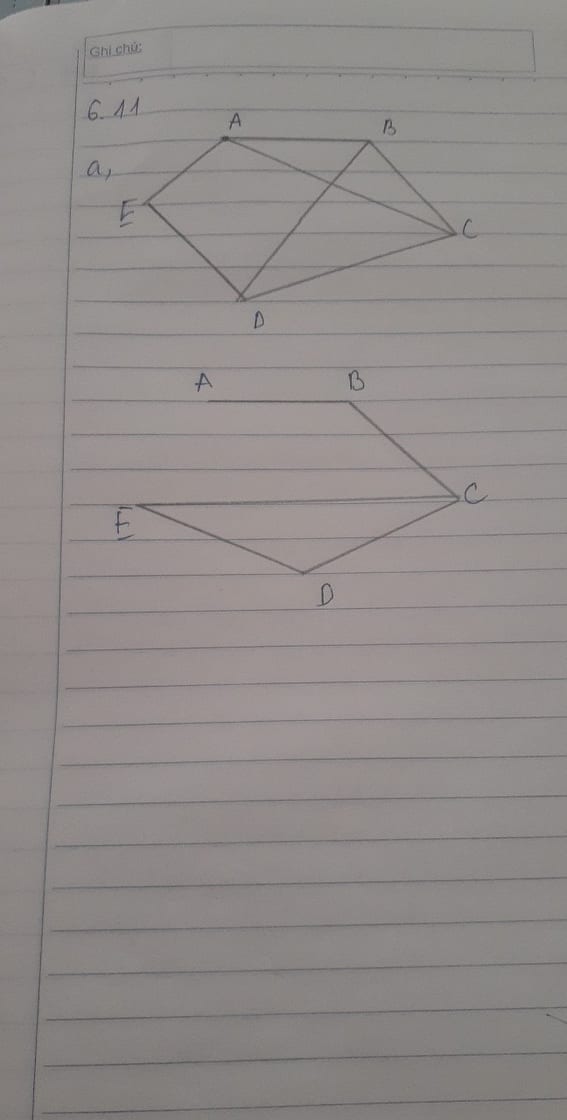 Ghi chú:
6.11
a,
A
B
E
C
D
A
B
C
E
D